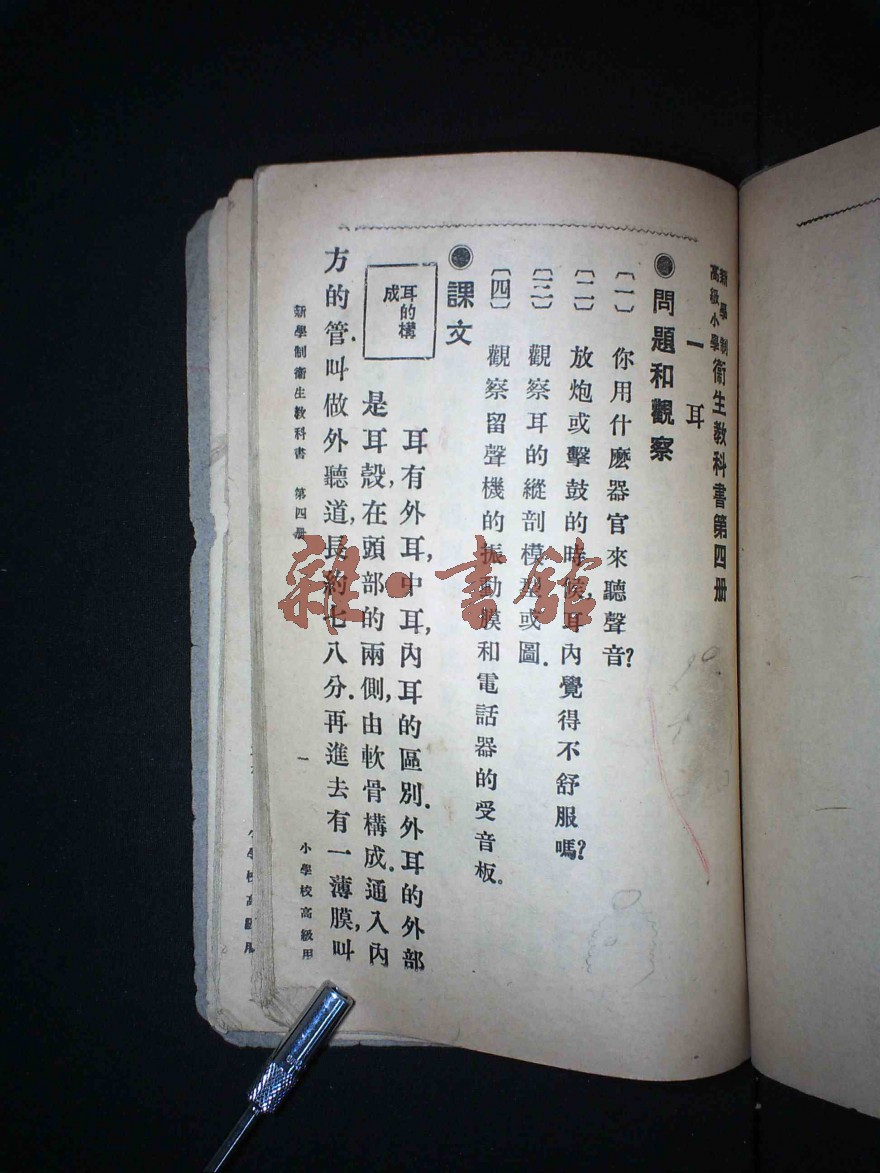 新學制
高級小學
衞生教科書第四册
一 耳
◉問題和觀察
〔一〕 你用什麽器官來聽聲音?
〔二〕 放炮或擊鼓的時候,耳內覺得不舒服嗎?
〔三〕 觀察耳的縱剖模型或圖.
〔四〕 觀察留聲機的振動膜和電話器的受音板。
◉課文
耳的構
成
耳有外耳,中耳,內耳的區別.外耳的外部
是耳殼,在頭部的兩側,由軟骨構成.通入內
方的管.叫做外聽道,長約七八分.再進去有一薄膜,叫
新學制衞生教科書 第四册 一 小學校高級用
小學校高級用
雜·書館